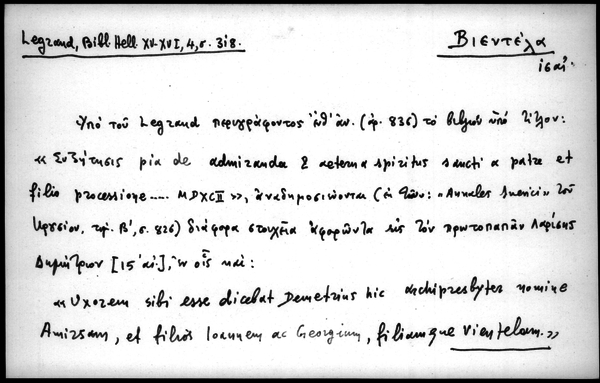 Legrand, Bibl. Hell. XV-XVI, 4, σ. 318.
Βιεντέλα
ις αἰ.
Ὑπὸ τοῦ Legrand περιγράφοντος (ἀρ. 836) τὸ βιβλίον ὑπὸ τίτλον:
« Συζήτησις pia de admiranda & aeterna spiritus sancti a patre et
filio processione..... MDXCII », ἀναδημοσιεύονται (ἐκ τῶν: «Annales Suevici» τοῦ
Κρουσίου, τόμ. β', σ. 826) διάφορα στοιχεῖα ἀφορῶντα εἰς τὸν πρωτοπαπᾶν Λαρίσης
Δημήτριον [15 αἰ.], ἐν οἷς καὶ:
« Uxorem sibi esse dicebat Demetrius hic archipresbyter nomine
Amirsam, et filios Ioannem ac Georgium, filiamque Vientelam. »